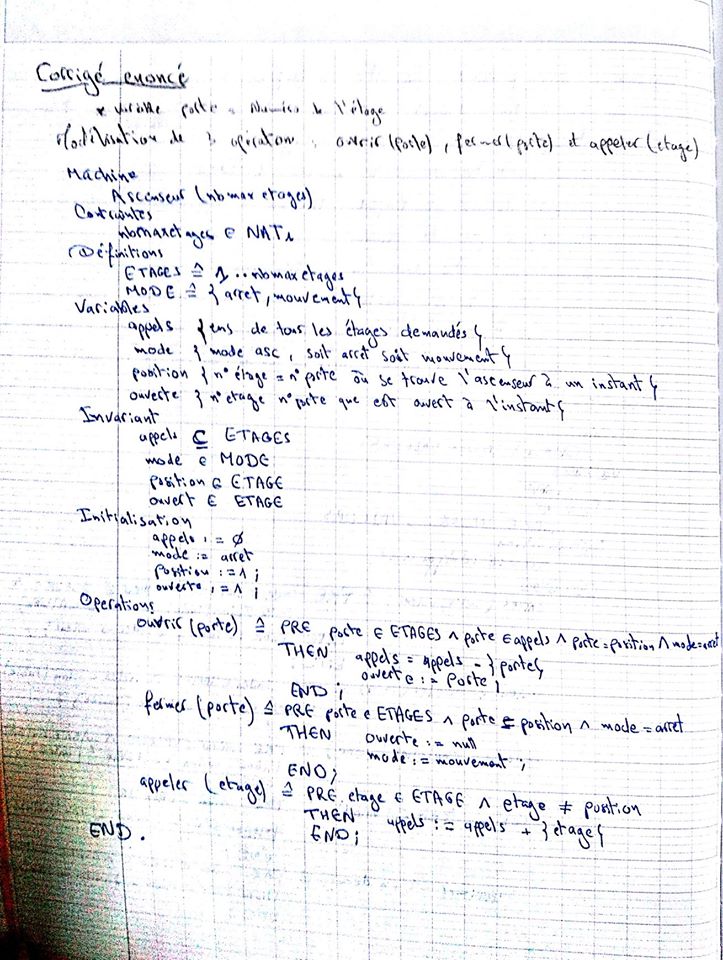 Corrigé enoncé
* variable porte = Numéro de l'étage
Modélisation de 3 opération : ouvrir (porte), fermer (porte) et appeler (etage)
Machine
Ascenseur (nbmaxetages)
Contraintes
nbmaxetages ∈ NAT1
Définitions
ETAGES ≙ 1..nbmaxetages
MODE ≙ {arret, mouvement}
Variables
appels {ens de tous les étages demandés}
mode {mode asc, soit arrêt soit mouvement}
position {n° étage = n° porte où se trouve l'ascenseur à un instant}
ouverte {n° etage n° porte que est ouvert à l'instant}
Invariant
appels ⊆ ETAGES
mode ∈ MODE
position ∈ ETAGE
ouvert ∈ ETAGE
Initialisation
appels := ∅
mode := arret
Position := 1 ;
ouverte := 1 ;
Operations
ouvrir (porte) ≙ PRE porte ∈ ETAGES ∧ porte ∈ appels ∧ porte = position ∧ mode = arret
THEN appels = appels - {porte}
ouverte := Porte ;
END ;
fermer (porte) ≙ PRE porte ∈ ETAGES ∧ porte = position ∧ mode = arret
THEN ouverte := null
mode := mouvement ;
END ;
appeler (etage) ≙ PRE etage ∈ ETAGE ∧ etage ≠ position
THEN appels := appels + {etage}
END ;
END.